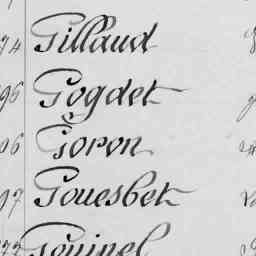 74 Gillaud
96 Gogdet
06 Goron
07 Gouesbet
Gouinel